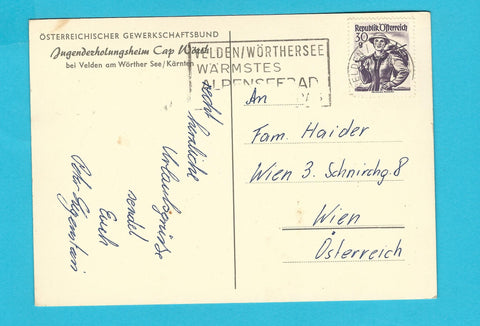 ÖSTERREICHISCHER GEWERKSCHAFTSBUND
Jugenderholungsheim Cap Wörth
bei Velden am Wörther See/Kärnten
VELDEN/WÖRTHERSEE
WÄRMSTES
ALPENSEEBAD
Republik Österreich
30 g
VELDEN
An
Fam. Haider
Wien 3. Schnirchg. 8
Wien
Österreich
recht
herzliche
Urlaubsgrüße
sendet
Euch
Peter